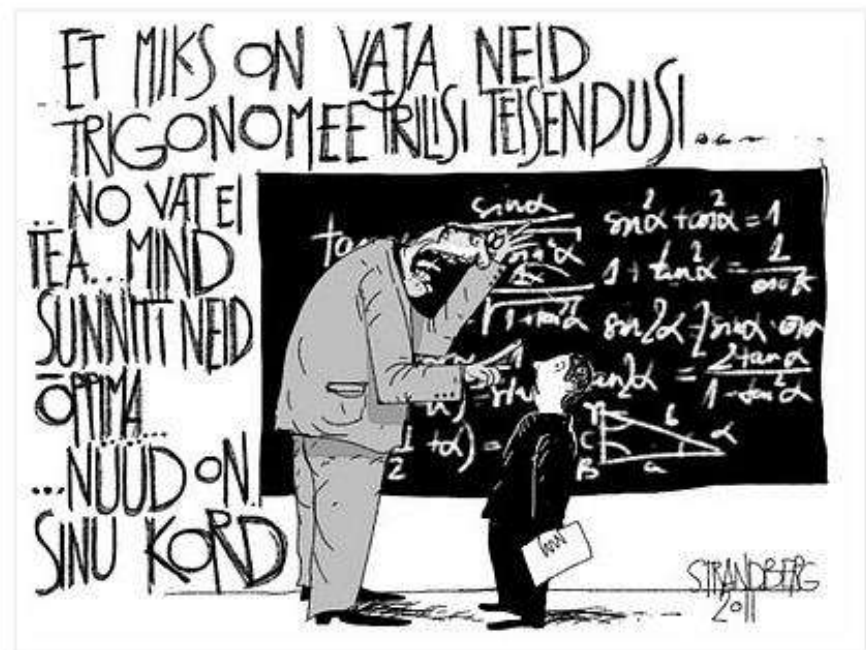 ET MIKS ON VAJA NEID
TRIGONOMEETRILISI TEISENDUSI....
...NO VAT EI
TEA...MIND
SUNNITI NEID
ÕPPIMA...
...NÜÜD ON
SINU KORD
sinα
sin²α + cos²α = 1
1 + tan²α = 1
sin2α
2tanα
1 - tan²α
+α) =
b
α
C
B
a
STRANDBERG
2011